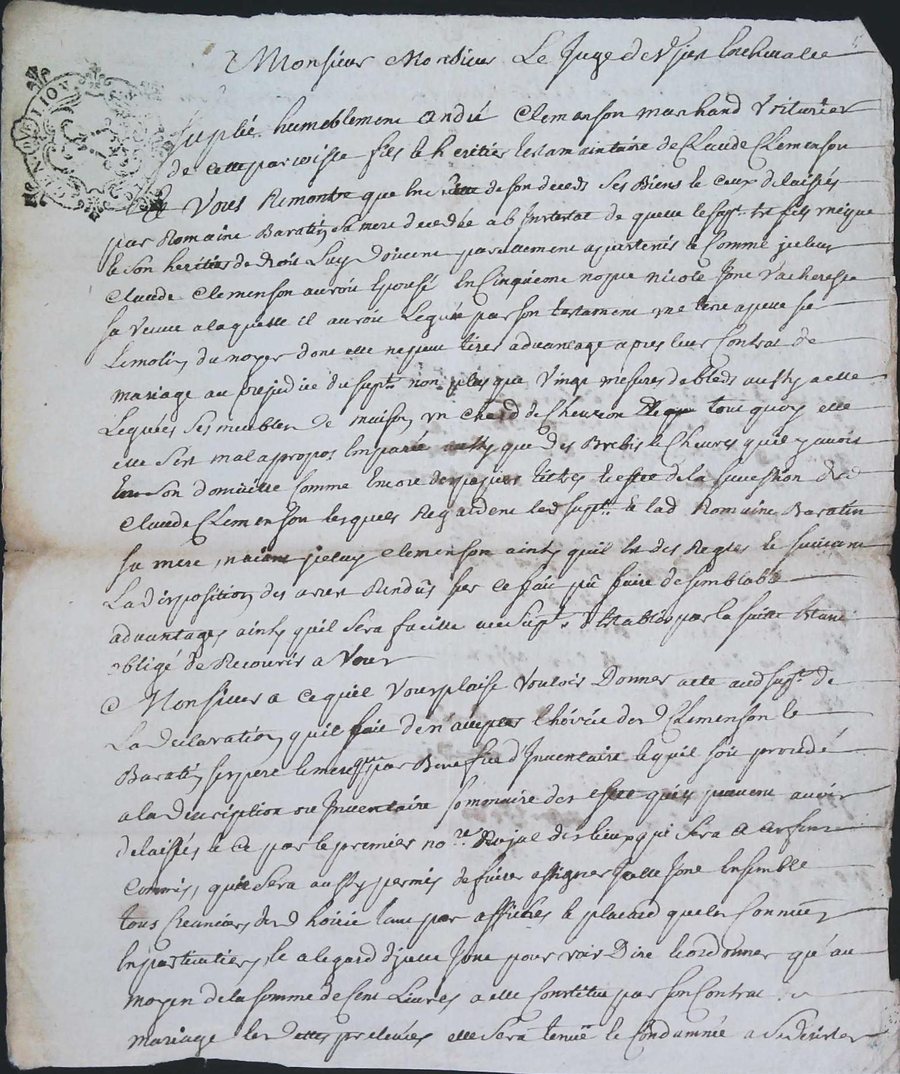 Monsieur Monsieur Le Juge de
Suplie humeblement André Clemenson marchand voiturier
de cette parroisse fils & heritier testamaintaire de Claude Clemenson
Et Vous Remontre que lors de son deceds ses Biens & ceux delaissés
par Romaine Baratin sa mere decedée ab Intestat de quelle le supt. est fils unique
& son heritier de droit Luy doivent appartenir & Comme jceluy
Claude Clemenson auroit Epousé En Cinquieme nopce nicole Jone
sa veuve a laquelle il auroit Legué par son testament une terre appellé
Lemolin du noyer dont elle ne peut tirer advantage apres leur Contrat de
mariage au prejudice du supt. non plus que Vingt mesures de bleds aussy a elle
Leguées ses meubles de maison un tout quoy elle
elle s'est mal a propos Emparée aussy que des Brebis & Chevres qu'il y avoit
En son domicille Comme Encore des papiers tittres & effets de la succession dud
Claude Clemenson lesquels Regardent led supt. & lad Romaine Baratin
sa mere, jceluy Clemenson ainsy qu'il Est des Regles & suivant
La disposition des arrest Rendûs sur ce fait pû faire de semblable
advantages ainsy qu'il sera facille aud supt. d'establir par la suitte Estant
obligé de Recourir a Vous
Monsieur a ce qu'il Vous plaise Vouloir Donner acte aud supt. de
La declaration qu'il fait de n'accepter l'hoirie desd Clemenson &
Baratin ses pere & mere que par Benefice d'Inventaire & qu'il soit procedé
a la description ou Inventaire sommaire des effets qu'ils peuvent avoir
delaissés & ce par le premier nore. Royal des lieux qui sera a cet fin
Commis, qu'il sera aussy permis de faire assigner jcelle Jone Ensemble
tous Creanciers desd hoirie tant par affiches & placard que les Connües
En particulier, & a legard d'jcelle Jone pour voir Dire & ordonner qu'au
moyen de la somme de Cent Livres a elle Constitué par son Contrat de
mariage & elle sera tenüe & Condamnée a se desister